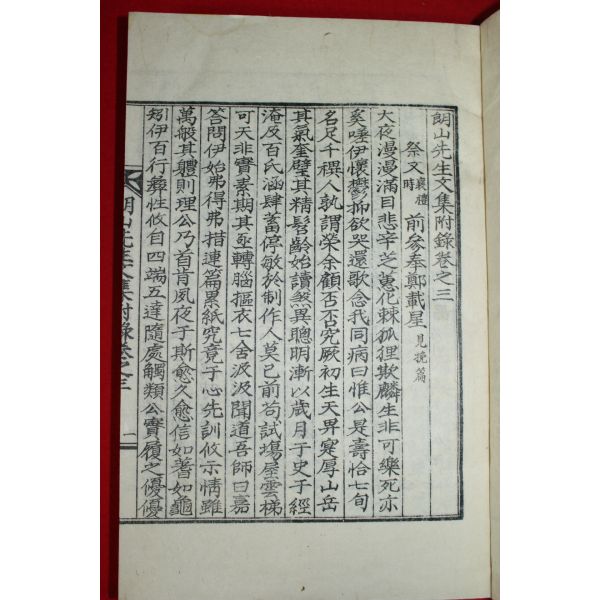 朗山先生文集附錄卷之三
祭文 襄禮時 前參奉鄭載星 見挽篇
大夜漫漫滿目悲辛芝蕙化棘狐狸欺麟生非可樂死亦
奚唾伊懷鬱抑欲哭還歌念我同病曰惟公是壽恰七旬
名足千禩人孰謂榮余顧否否究厥初生天畀寔厚山岳
其氣奎璧其精髫齡始讀煞異聰明漸以歲月于史于經
淹及百氏涵肆蓄停敏於制作人莫已前苟試塲屋雲梯
可天非實素期其亟轉腦摳衣七舍汲汲聞道吾師曰嘉
答問伊始弗得弗措連篇累紙究竟于心先訓攸示情雖
萬般其軆則理公乃首肯夙夜于斯愈久愈信如蓍如龜
矧伊百行彛性攸自四端五達隨處觸類公實履之優優
朗山先生文集附錄卷之三 一